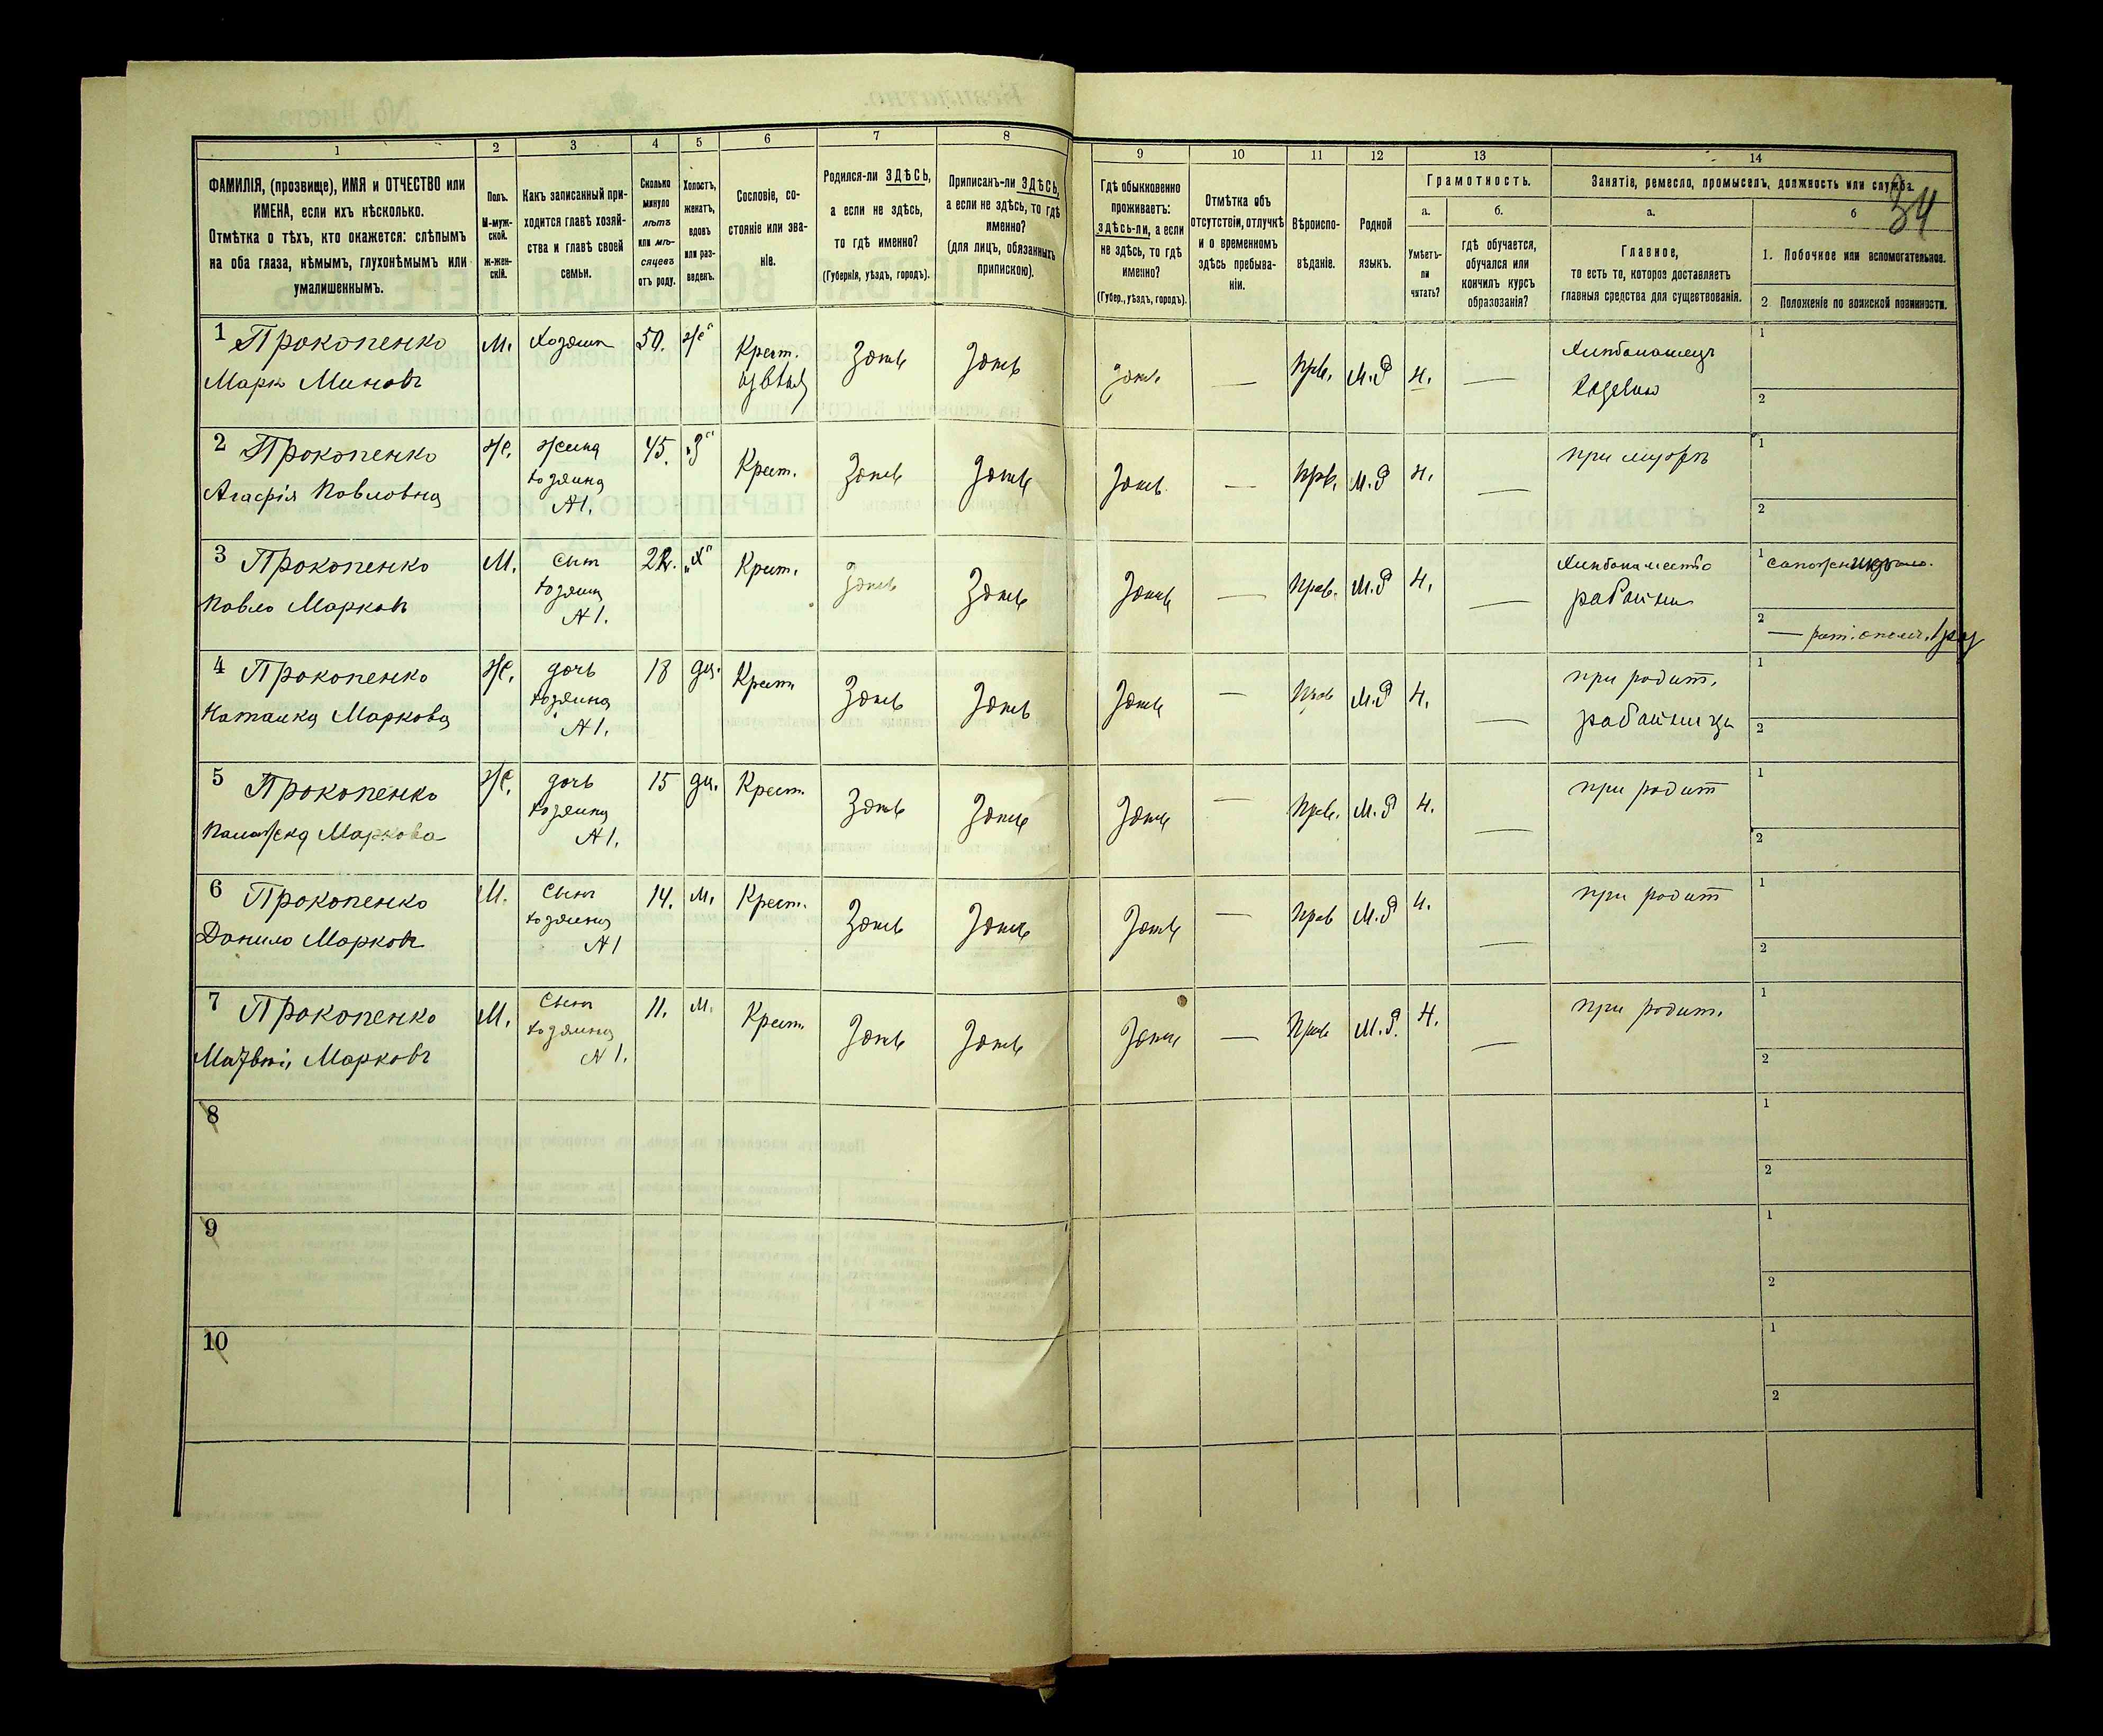 1
2
3
4
5
6
7
8
ФАМИЛІЯ, (прозвище), ИМЯ и ОТЧЕСТВО или
ИМЕНА, если ихъ нѣсколько.
Отмѣтка о тѣхъ, кто окажется: слѣпымъ
на оба глаза, нѣмымъ, глухонѣмымъ или
умалишеннымъ.
Полъ.
М-муж-
ской.
Ж-жен-
скій.
Какъ записанный при-
ходится главѣ хозяй-
ства и главѣ своей
семьи.
Сколько
минуло
лѣтъ
или мѣ-
сяцевъ
отъ роду.
Холостъ,
женатъ,
вдовъ
или раз-
веденъ.
Сословіе, со-
стояніе или зва-
ніе.
Родился-ли ЗДѢСЬ,
а если не здѣсь,
то гдѣ именно?
(Губернія, уѣздъ, городъ).
Приписанъ-ли ЗДѢСЬ,
а если не здѣсь, то гдѣ
именно?
(для лицъ, обязанныхъ
припискою).
9
10
11
12
13
14
Гдѣ обыкновенно
проживаетъ:
здѣсь-ли, а если
не здѣсь, то гдѣ
именно?
(Губер., уѣздъ, городъ).
Отмѣтка объ
отсутствіи, отлучкѣ
и о временномъ
здѣсь пребыва-
ніи.
Вѣроиспо-
вѣданіе.
Родной
языкъ.
Грамотность.
а.
Умѣетъ-
ли
читать?
б.
гдѣ обучается,
обучался или
кончилъ курсъ
образованія?
Занятіе, ремесло, промыселъ, должность или служба.
34
а.
Главное,
то есть то, которое доставляетъ
главныя средства для существованія.
б
1. Побочное или вспомогательное.
2 Положеніе по воинской повинности.
1 Прокопенко М. Хозяин 50. ж Крест. Здѣсь Здѣсь Здѣсь — Прв. М.Р н. — Хлѣбопашецъ 1
Марк Миновъ 2
2 Прокопенко Ж. жена 45. З Крест. Здѣсь Здѣсь Здѣсь — Прв. М.Р н. — при мужѣ 1
Агафія Павловна хозяина 2
№1.
3 Прокопенко М. Сын 22. Х Крест. Здѣсь Здѣсь Здѣсь — Прав. М.Р н. — Хлѣбопашество 1
Павло Марковъ хозяина работник 2 — рат. ополч. 1 раз
№1.
4 Прокопенко Ж. дочь 18 дѣ. Крест. Здѣсь Здѣсь Здѣсь — Прав М.Р н. — при родит. 1
Наталка Маркова хозяина работница 2
№1.
5 Прокопенко Ж. дочь 15 дѣ. Крест. Здѣсь Здѣсь Здѣсь — Прав. М.Р н. — при родит 1
Палажка Маркова хозяина 2
№1.
6 Прокопенко М. Сын 14. М. Крест. Здѣсь Здѣсь Здѣсь — Прав М.Р н. — при родит 1
Данило Марковъ хозяина 2
№1
7 Прокопенко М. Сын 11. М. Крест. Здѣсь Здѣсь Здѣсь — Прав М.Р. н. — при родит. 1
Матвѣй Марковъ хозяина 2
№1.
8 1
2
9 1
2
10 1
2